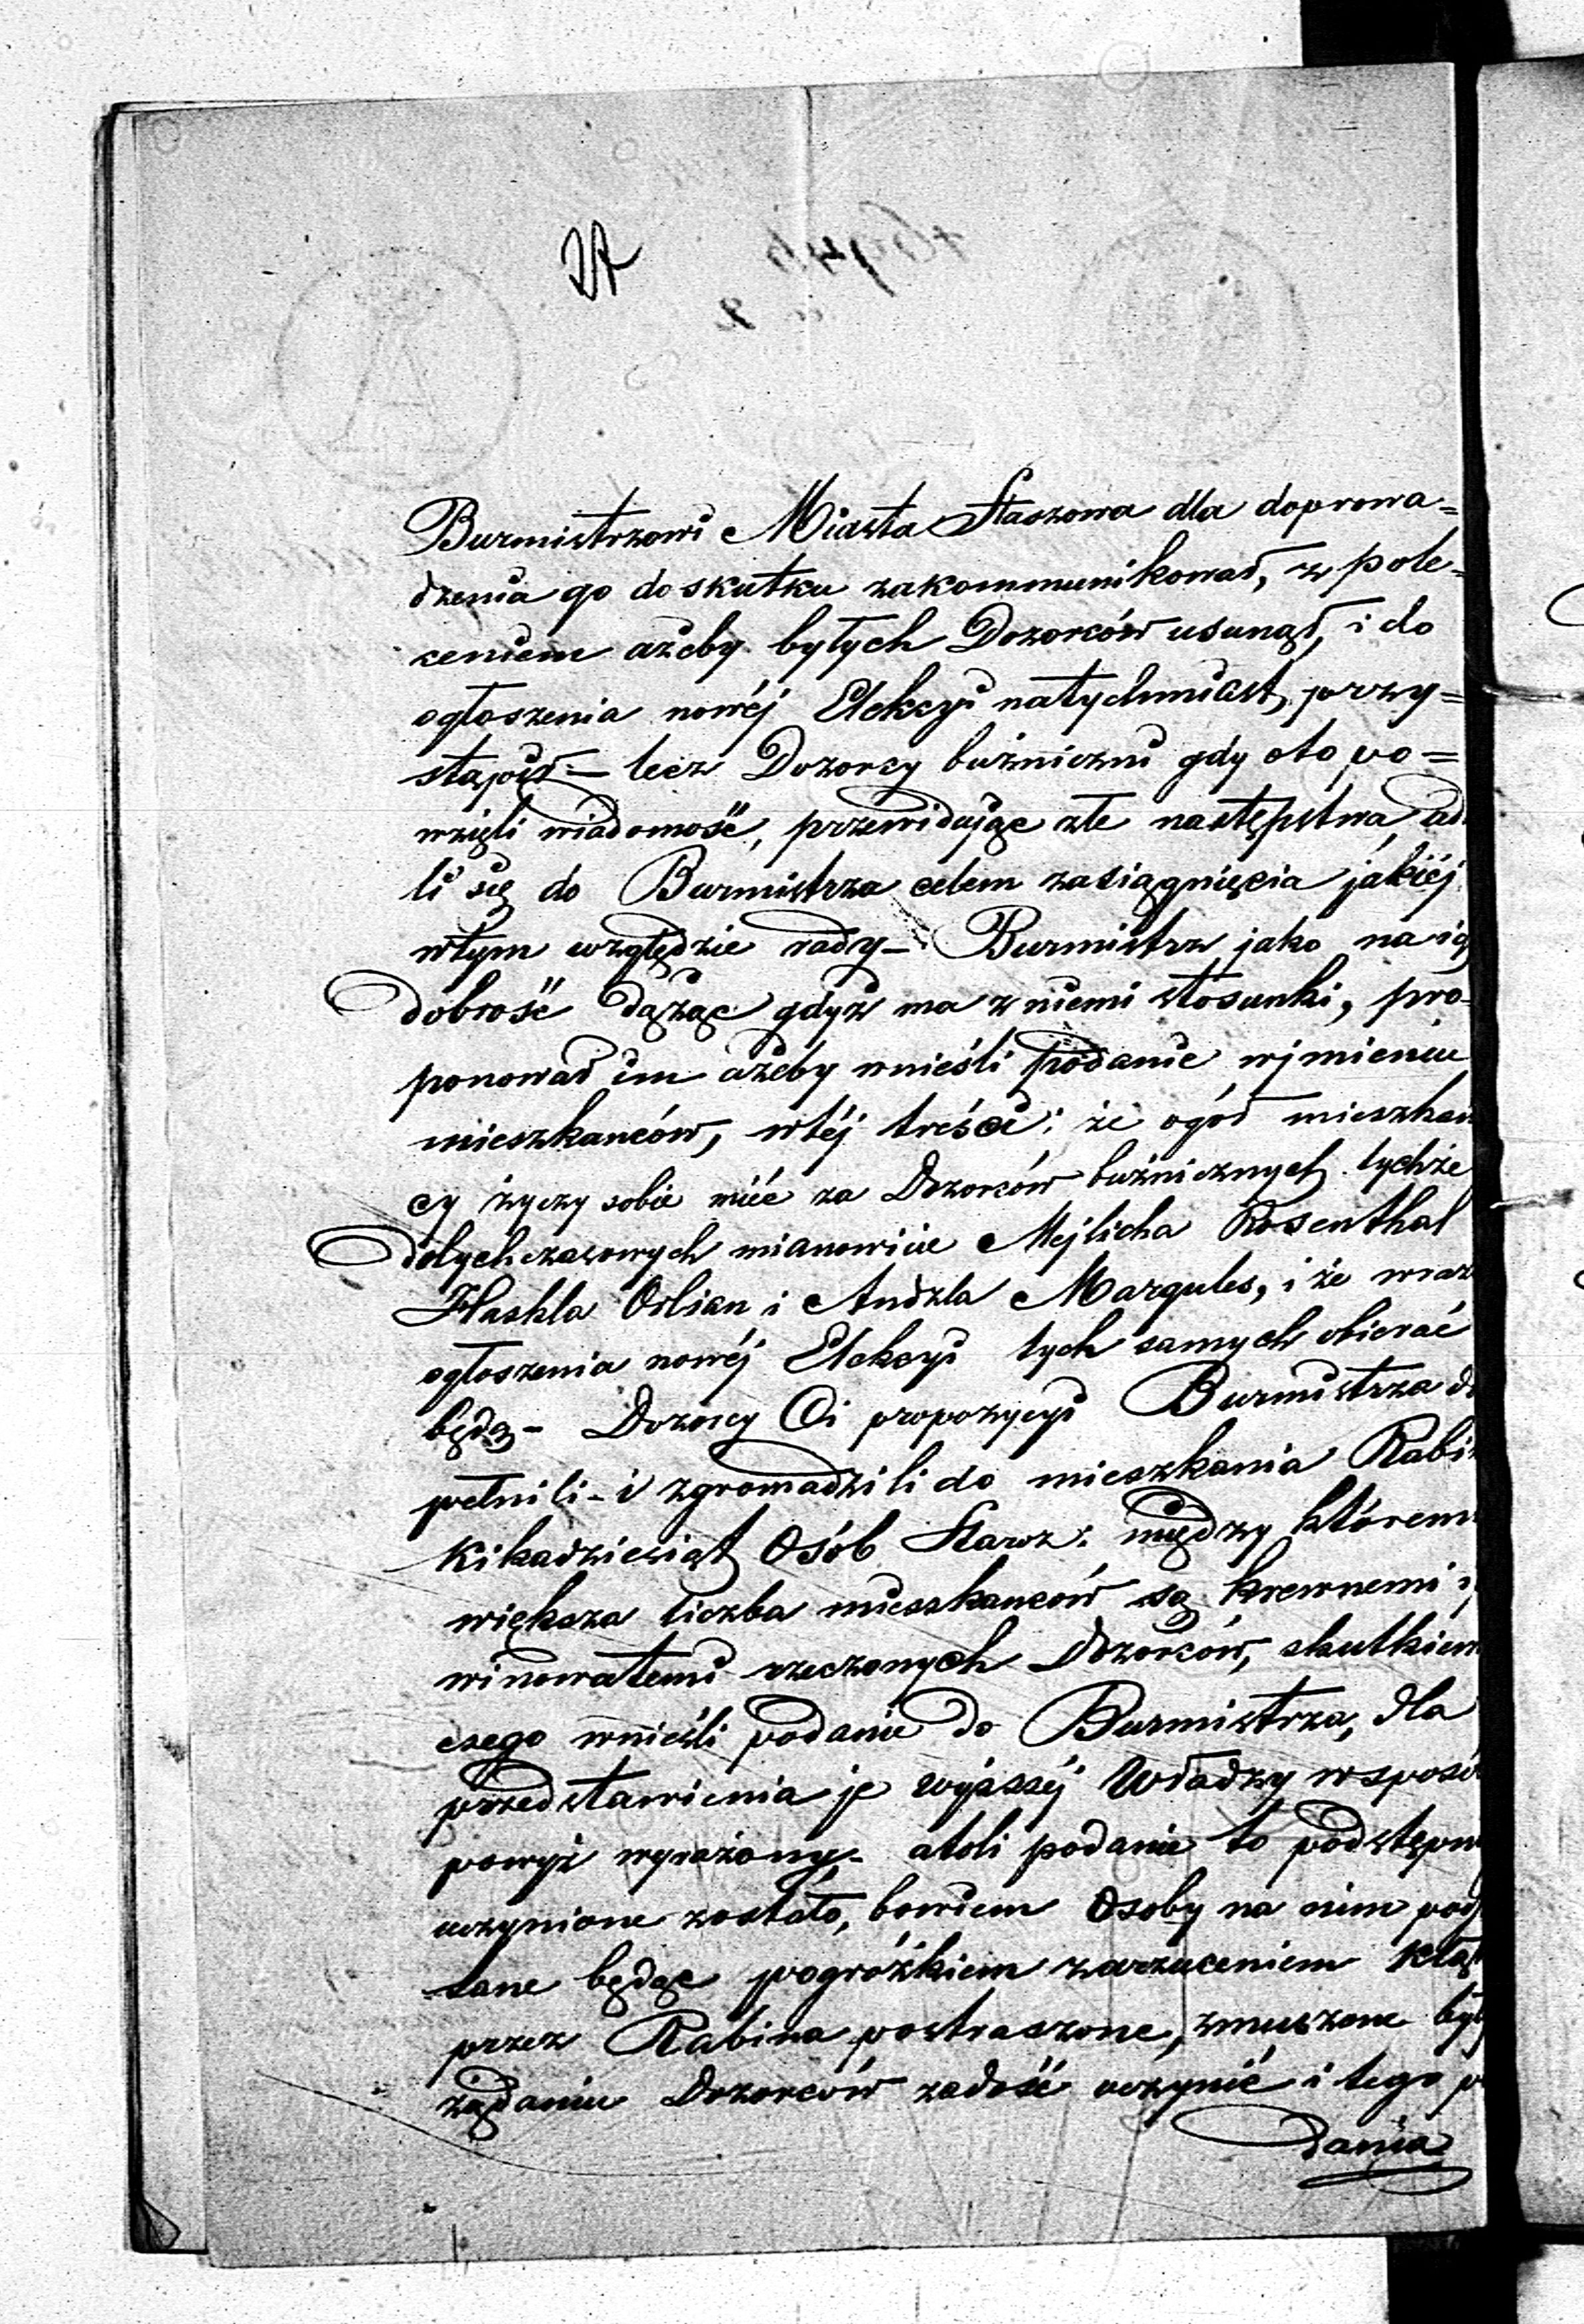 Burmistrzowi Miasta Staszowa dla doprowa=
dzenia go do skutku zakommunikował, z pole=
ceniem ażeby byłych Dozorców usunął, i do
ogłoszenia nowéj Elekcyi natychmiast przy=
stąpił – lecz Dozorcy bużniczni gdy oto po=
wzięli wiadomość, przewidując złe następstwa, ud
li się do Burmistrza celem zasiągnięcia jakiéj
wtym względzie rady – Burmistrz jako na ich
dobrość dążąc gdyż ma z niemi stosunki, pro-
ponował im ażeby wnieśli podanie wjmieniu
mieszkanców, wtéj treści; że ogół mieszkań
cy życzy sobie mieć za Dozorców bużnicznych tychże
dotychczasowych mianowicie Mejlicha Rosenthal
Haskla Orlian i Andzla Margules, i że wraz
ogłoszenia nowéj Elekcyi tych samych obierać
będą – Dozorcy Ci propozycyi Burmistrza do
pełnili – i zgromadzili do mieszkania Rabin
Kikadziesiąt Osób Starz: między któremi
większa liczba mieszkanców są krewnemi i
winowatemi rzeczonych Dozorców, skutkiem
czego wnieśli podanie do Burmistrza, dla
przedstawienia je wyższéj Władzy wsposób
powyż wyrażony – atoli podanie to podstępnie
uczynione zostało, bowiem Osoby na nim pod
sane będąc pogróżkiem zarzuceniem Kląt
przez Rabina postraszone, zmuszone były
żądaniu Dozorców zadość uczynić i tego p
dania